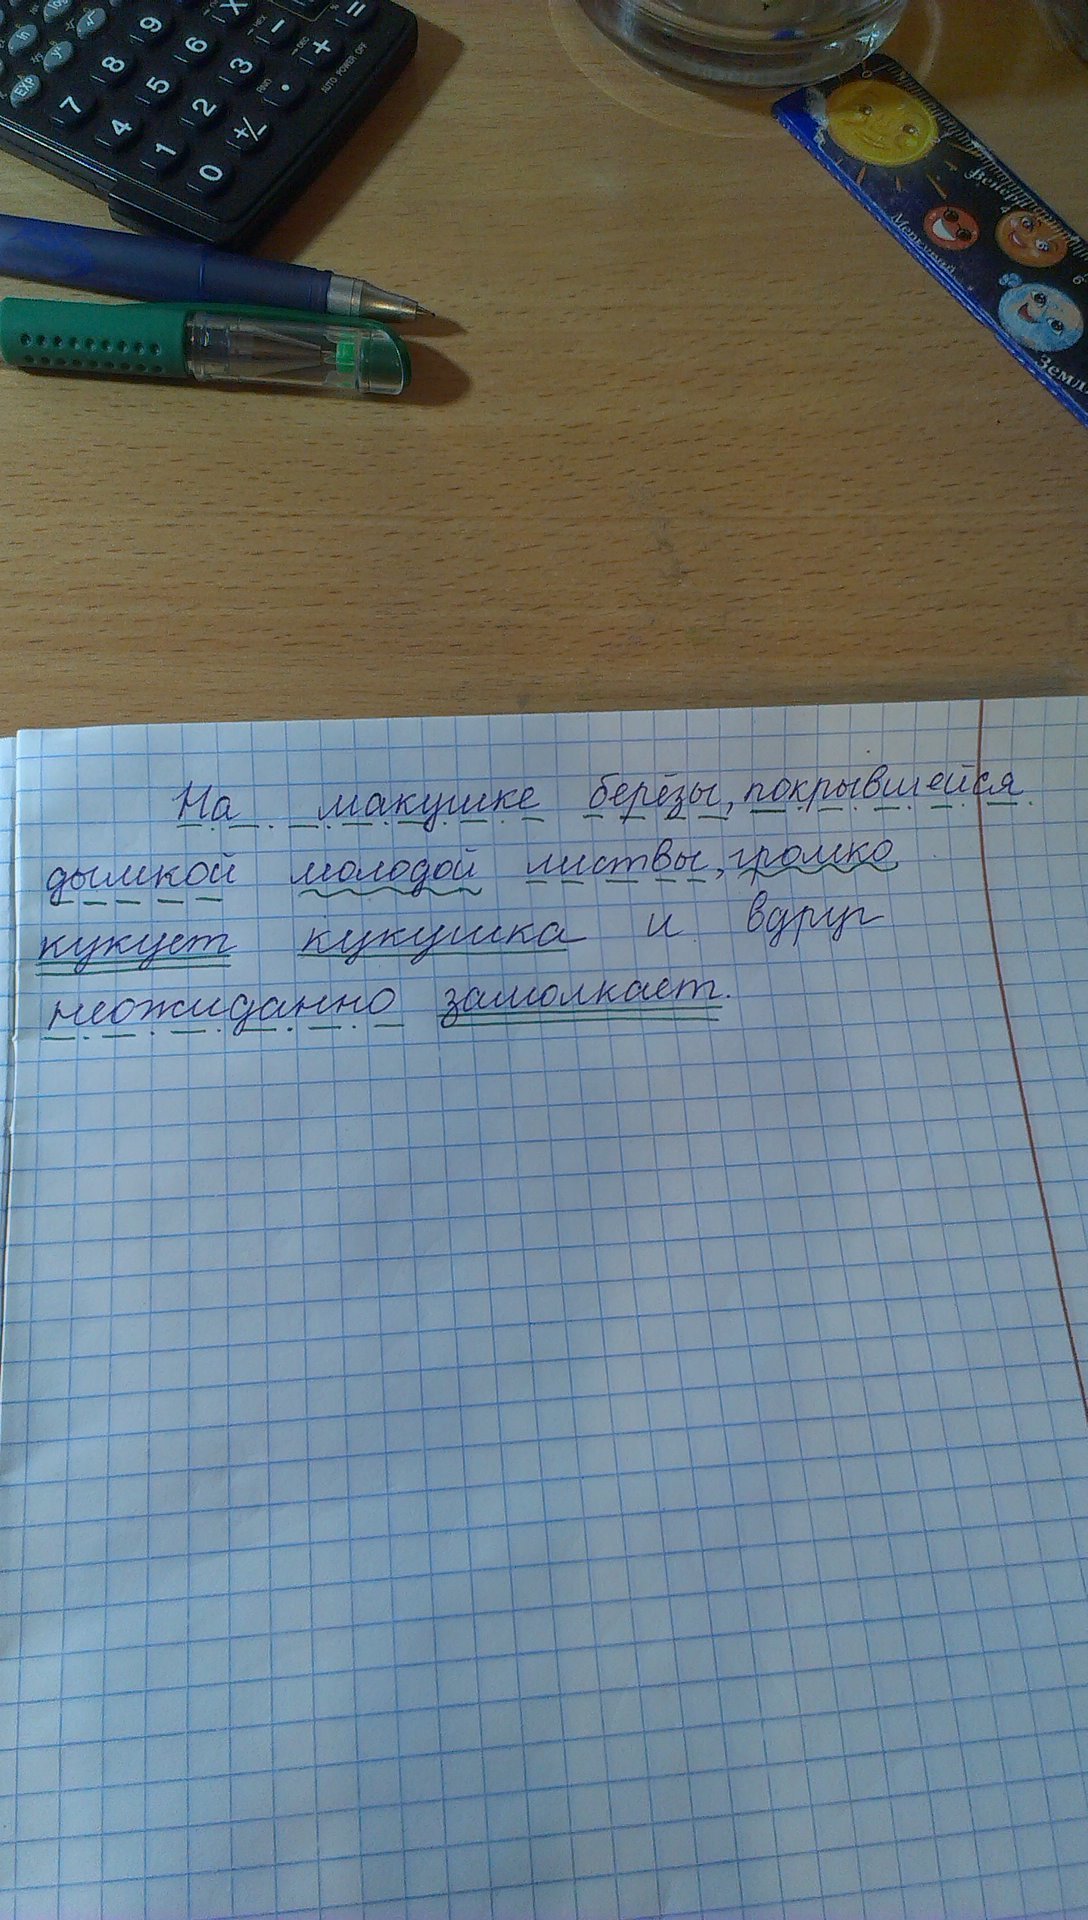 EXP
7
8
9
4
5
6
X
−
=
1
2
3
+
0
+/−
.
AUTO POWER OFF
0
Меркурий
6
Земл
На макушке берёзы, покрывшейся
дымкой молодой листвы, громко
кукует кукушка и вдруг
неожиданно замолкает.